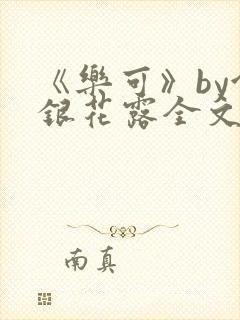 《樂可》by
銀花露全文
南真